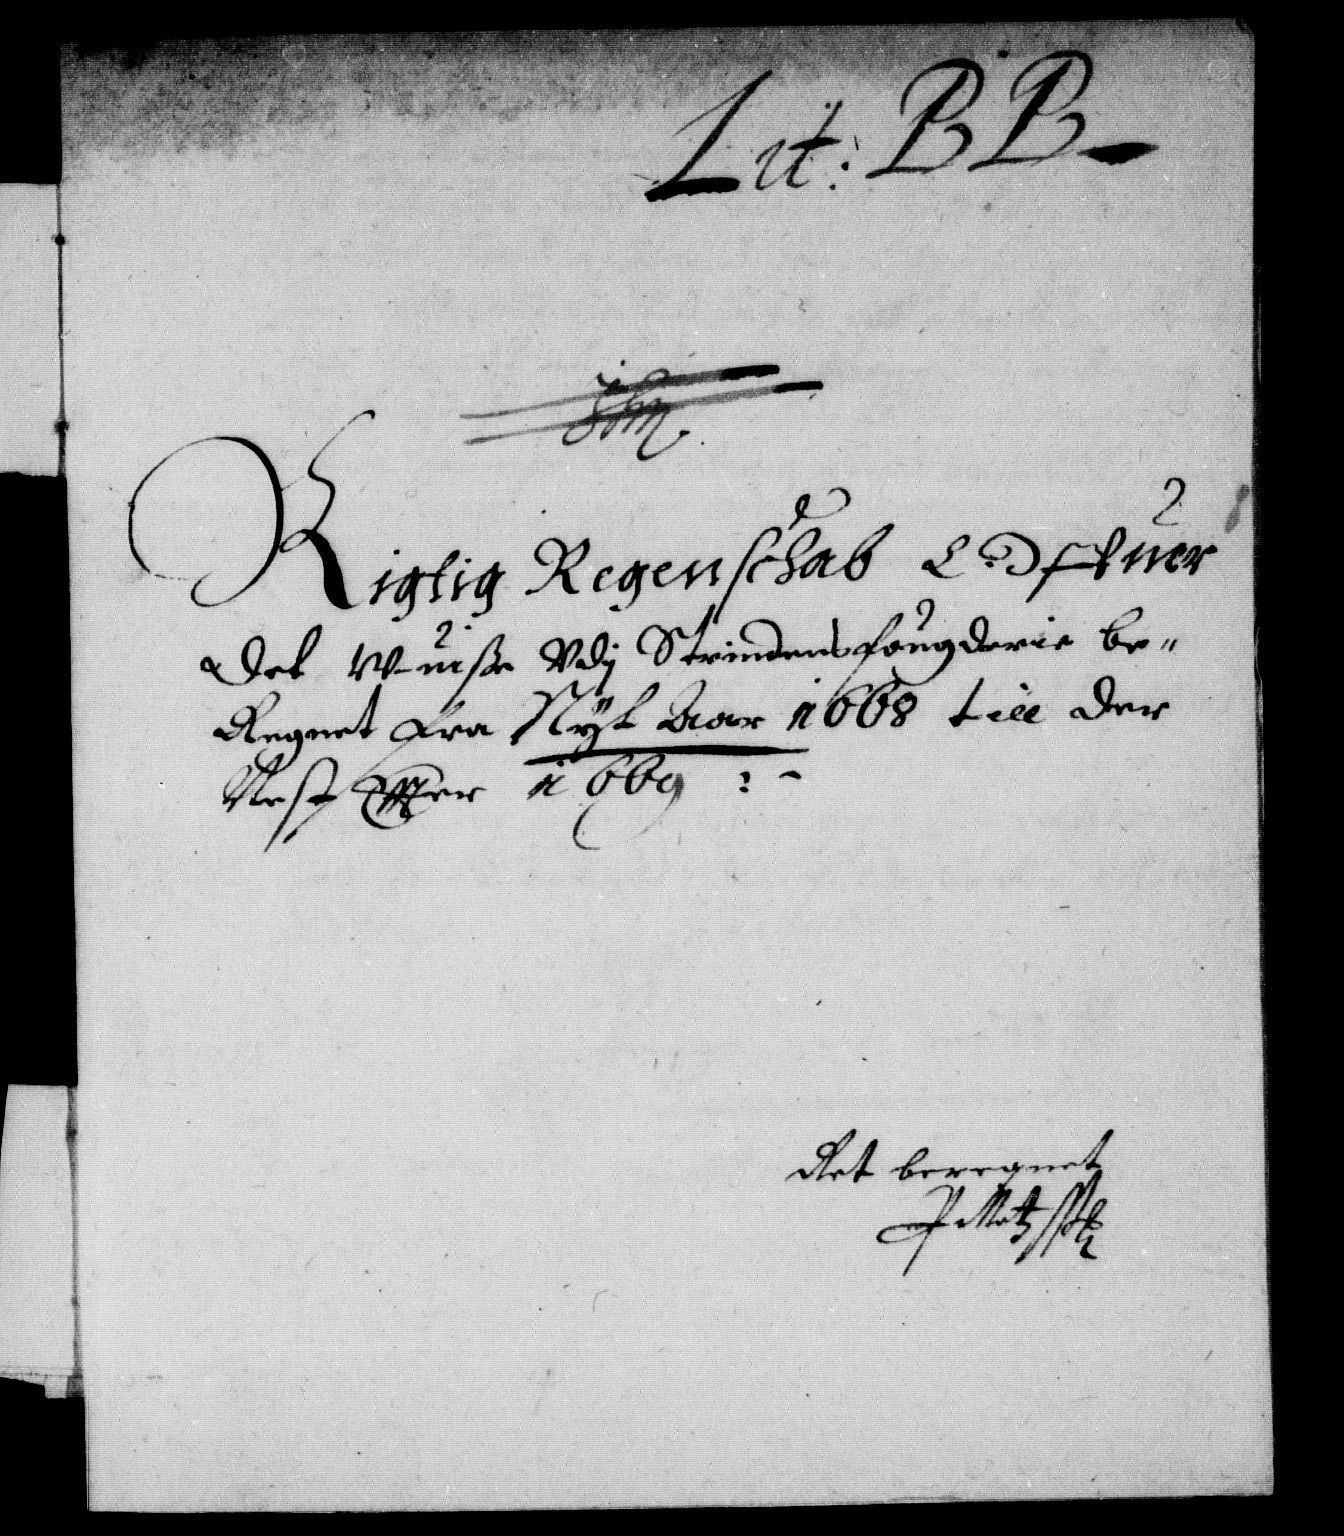 Lit: BB
Rigtig Regenschab Offuer
det Wuisse Vdj Strindens fougderie be„
Regnet fra Nyt Aar 1668 till der
Nest Effter 1669 :-
Ret beregnet